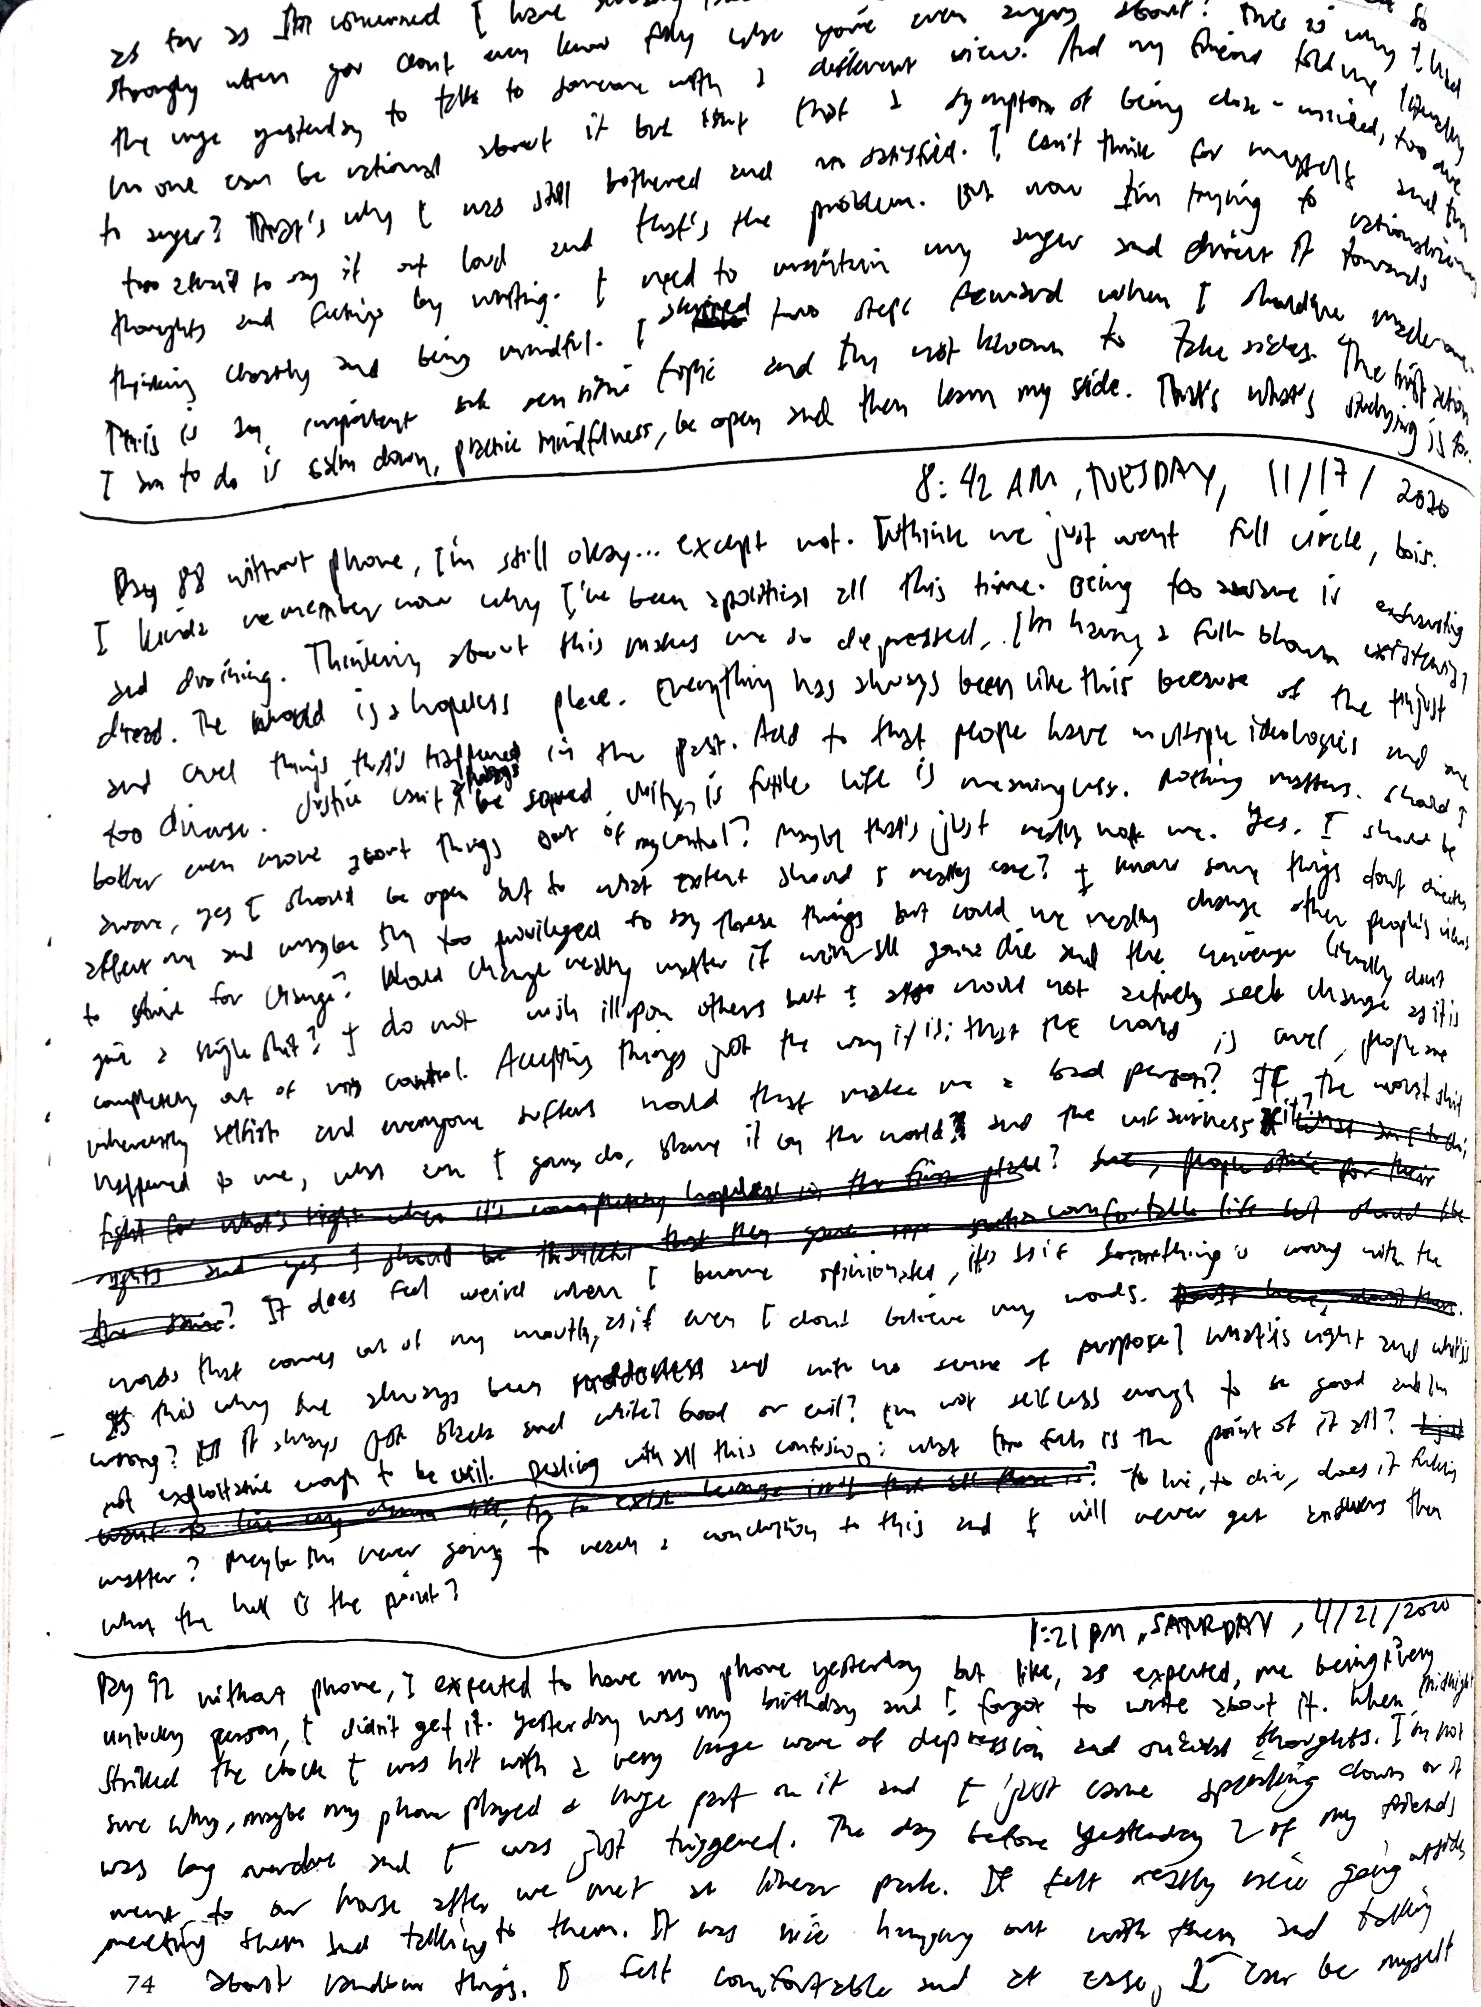 as far as I'm concerned I have
strongly when you don't even know fully what you're even angry about? This is why I had
the urge yesterday to talk to someone with a different view. And my friend told me literally
no one can be rational about it but isn't that a symptom of being close-minded, too due
to anger? That's why I was still bothered and unsatisfied. I can't think for myself and I'm
too afraid to say it out loud and that's the problem. But now I'm trying to rationalizing
thoughts and feelings by writing. I need to maintain my anger and direct it towards
thinking clearly and being mindful. I skipped two steps forward when I should've made one.
This is an important and sensitive topic and I'm not known to take sides. The first action
I am to do is calm down, practice mindfulness, be open and then learn my side. That's what's studying is for.
8:42 AM, TUESDAY, 11/17/2020
Day 88 without phone, I'm still okay... except not. I think we just went full circle, bois.
I kinda remember now why I've been apolitical all this time. Being too aware is exhausting
and draining. Thinking about this makes me so depressed, I'm having a full blown existential
dread. The world is a hopeless place. Everything has always been like this because of the unjust
and cruel things that's happened in the past. Add to that people have multiple ideologies and are
too diverse. Justice can't always be served, unity is futile. Life is meaningless. Nothing matters. Should I
bother even more about things out of my control? Maybe that's just really not me. Yes, I should be
aware, yes I should be open but to what extent should I really care? I know some things don't directly
affect me and maybe I'm too privileged to say these things but could we really change other people's views
to strive for change? Would change really matter if we're all gonna die and the universe literally don't
give a single shit? I do not wish ill upon others but I also would not actively seek change as it is
completely out of my control. Accepting things just the way it is: that the world is cruel, people are
inherently selfish and everyone suffers would that make me a bad person? If the worst shit
happened to me, what am I gonna do, blame it on the world? and the unfairness of it?
fight for what's right when it's completely hopeless in the first place? Sure, people strive for their
rights and yes I should be thankful that they gave me comfortable life but should I be
? It does feel weird when I become opinionated, it's as if something is wrong with the
words that comes out of my mouth, as if even I don't believe my words.
Is this why I've always been and with no sense of purpose? What's right and what's
wrong? Is it always just black and white? Good or evil? I'm not selfless enough to be good and I'm
not exploitative enough to be evil. Dealing with all this confusion: what the fuck is the point of it all? I just
want to live my own life, try to exist because isn't that all there is? To live, to die, does it fucking
matter? Maybe I'm never going to reach a conclusion to this and I will never get answers then
what the hell is the point?
1:21 PM, SATURDAY, 4/21/2020
Day 92 without phone, I expected to have my phone yesterday but like, as expected, me being a very
unlucky person, I didn't get it. Yesterday was my birthday and I forgot to write about it. When midnight
striked the clock I was hit with a very huge wave of depression and suicidal thoughts. I'm not
sure why, maybe my phone played a huge part on it and I just came spiraling down or it
was long overdue and I was just triggered. The day before yesterday 2 of my friends
went to our house after we met at linear park. It felt really nice going outside,
meeting them and talking to them. It was nice hanging out with them and talking
74 about random things. I felt comfortable and at ease, I can be myself